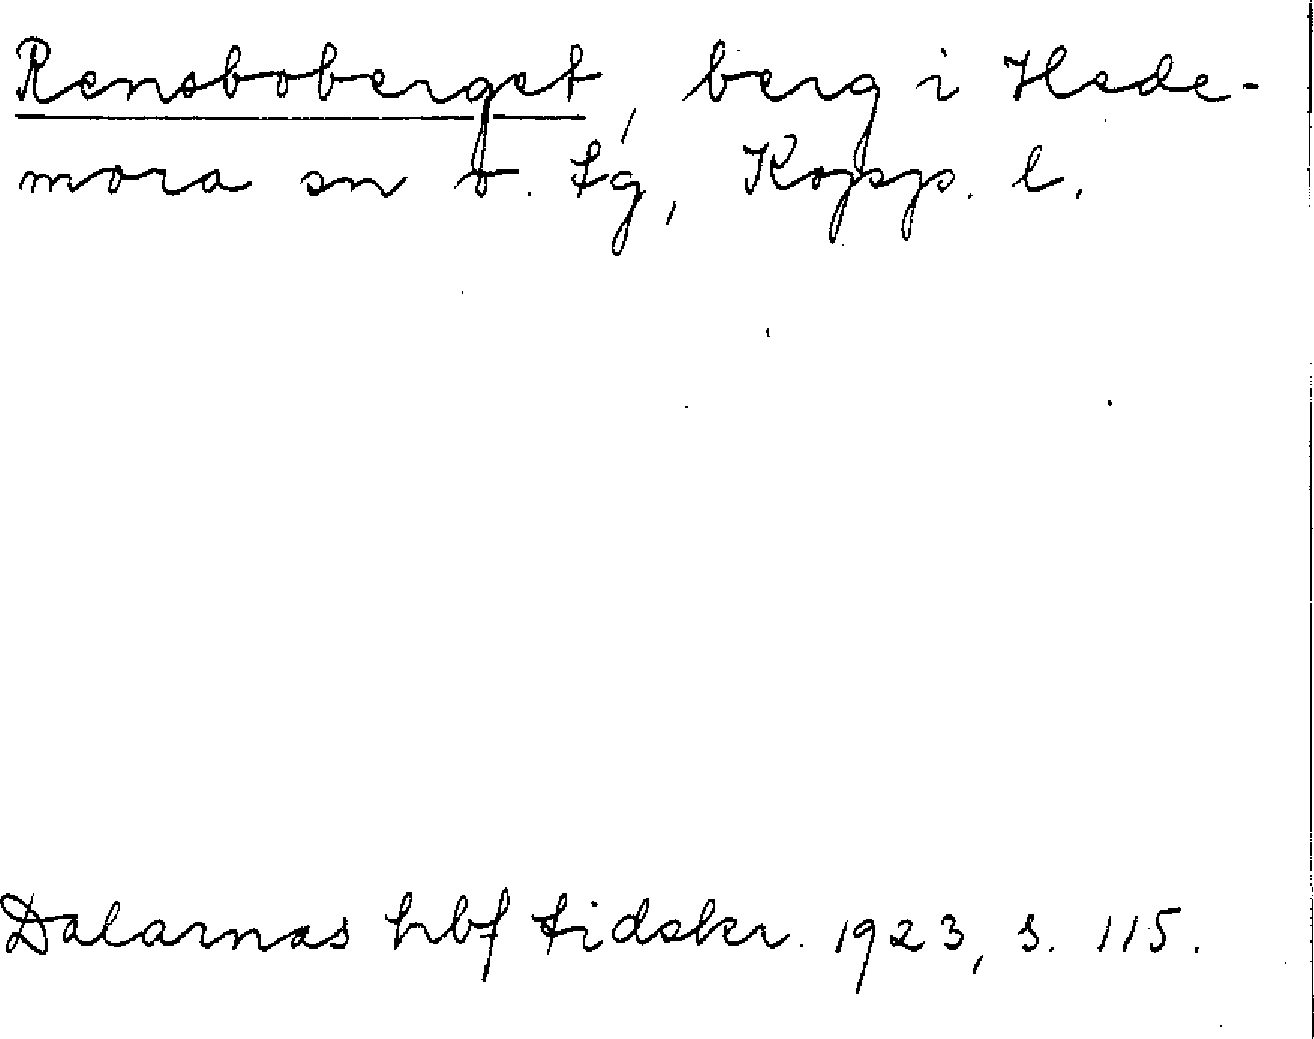 Rensboberget, berg i Hede-
mora sn o. tg, Kopp. l.
Dalarnas hbf tidskr. 1923, s. 115.